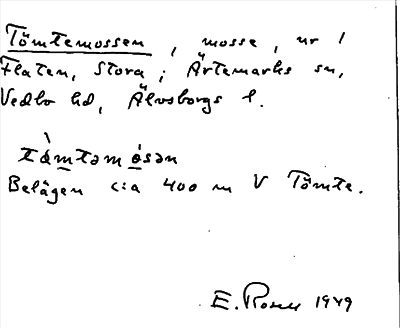 Tömtemossen, mosse, nr 1
Flaten, Stora; Ärtemarks sn,
Vedbo hd, Älvsborgs l.
tömtəmósən
Belägen c:a 400 m V Tömte.
E. Rosell 1949